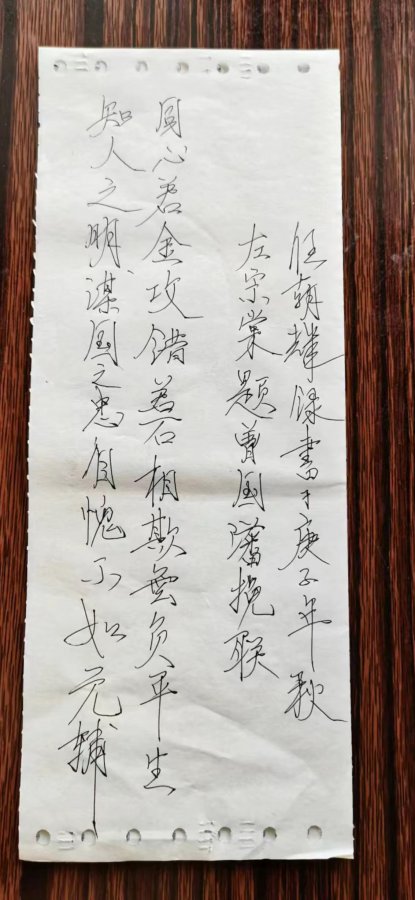 知人之明谋国之忠自愧不如元辅
同心若金攻错若石相欺無负平生
左宗棠题曾国藩挽联
任朝辉录书于庚子年秋